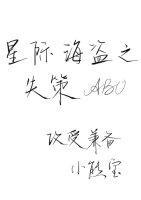 星际海盗之
失策 ABO
攻受兼备
小熊宝